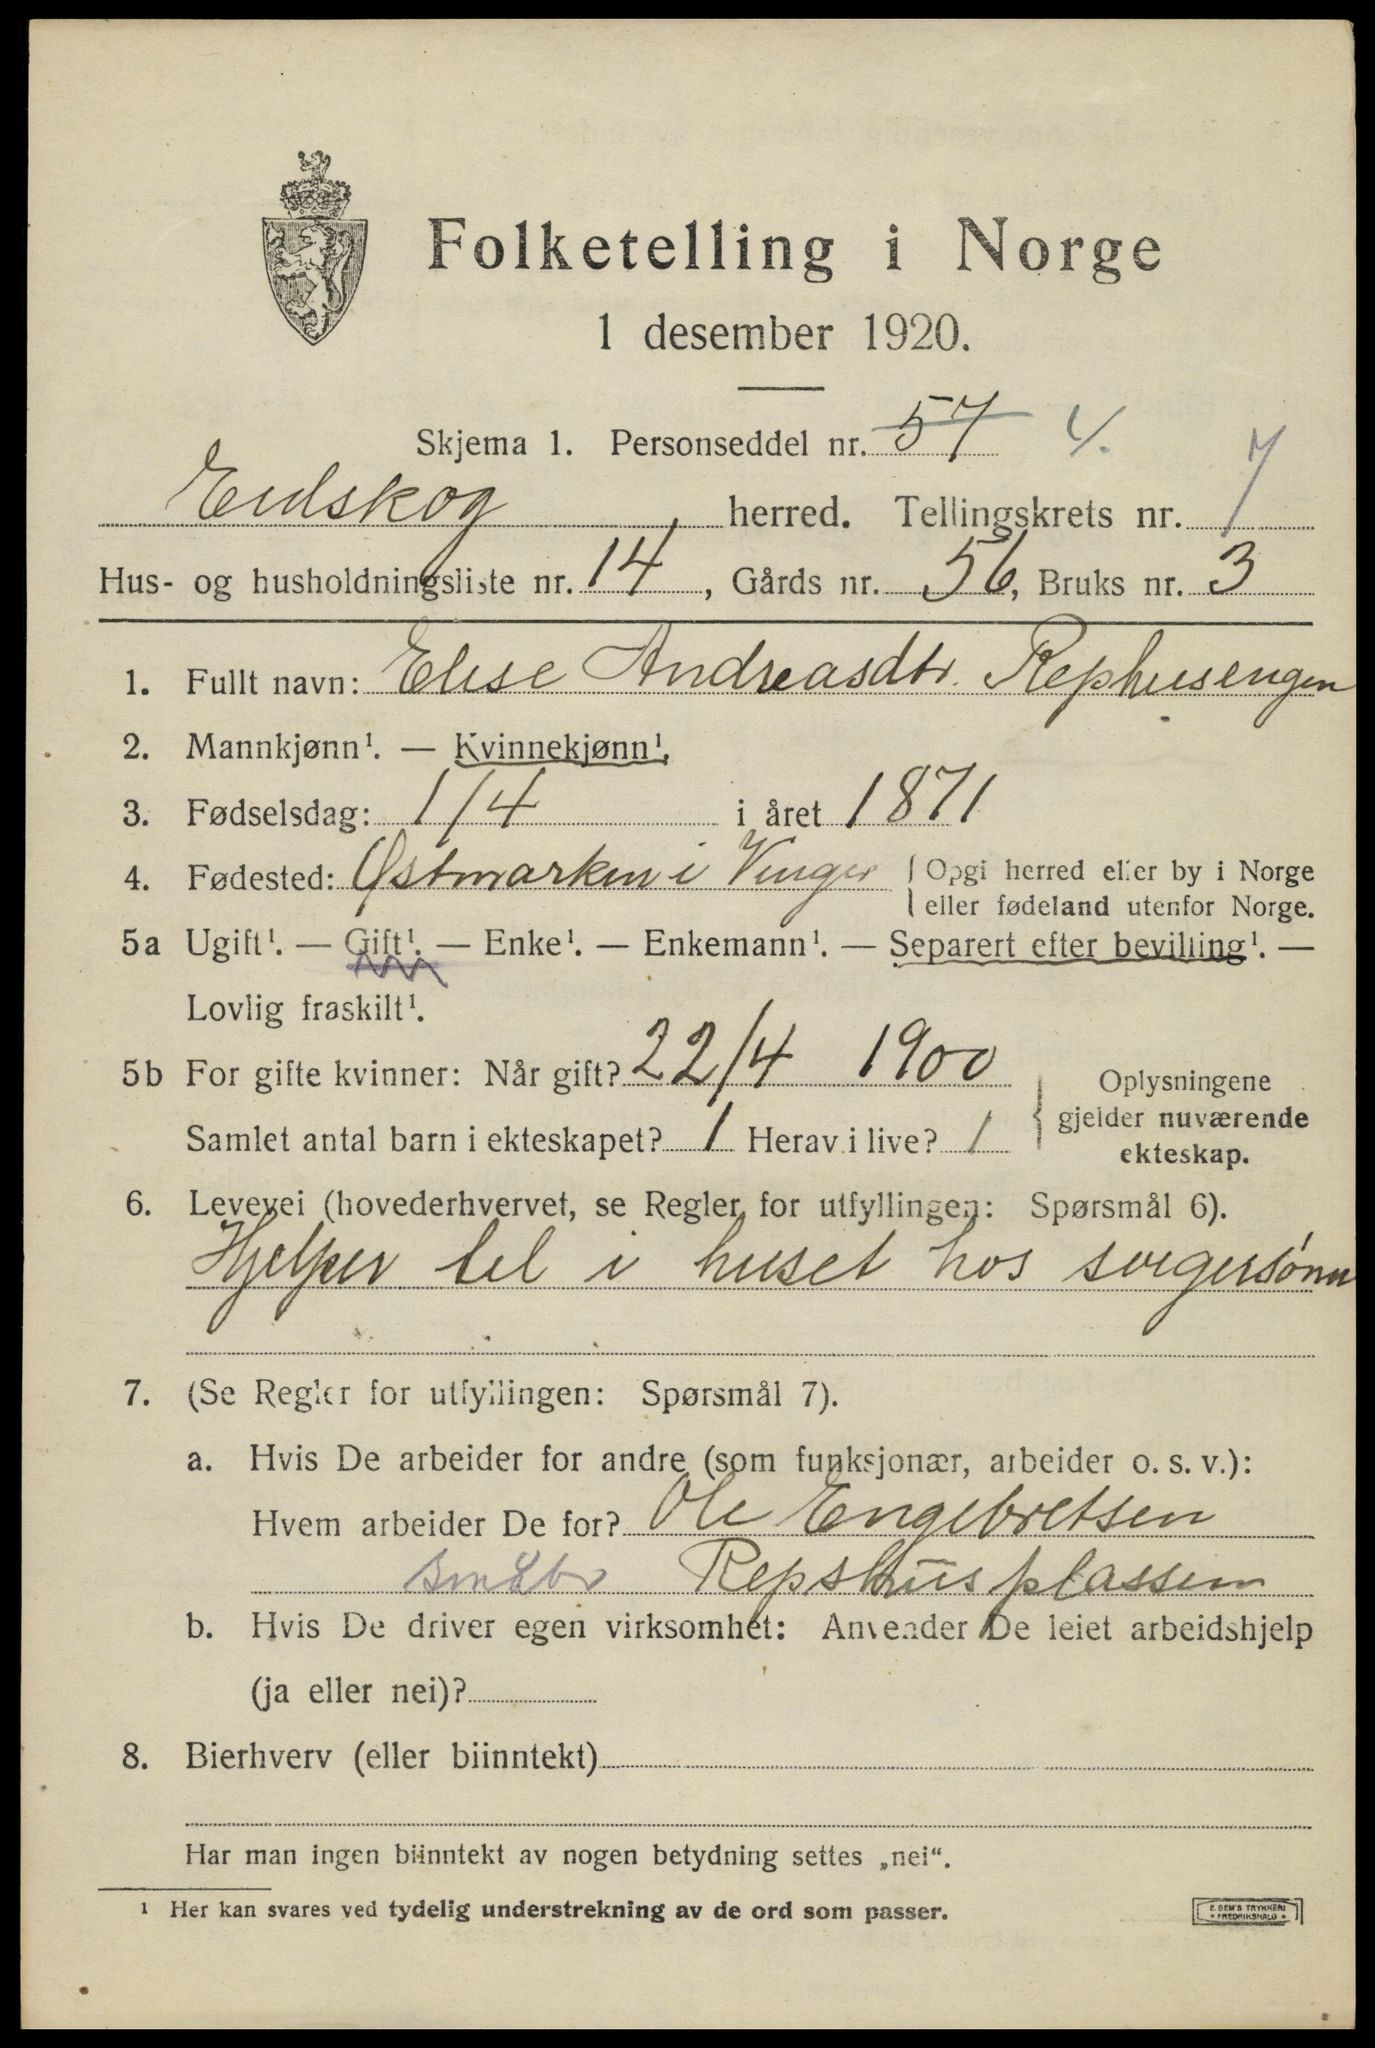 Folketelling i Norge
1 desember 1920.
Skjema 1. Personseddel nr. 57 4.
Eidskog herred. Tellingskrets nr. 7
Hus- og husholdningsliste nr. 14, Gårds nr. 56, Bruks nr. 3
1. Fullt navn: Elise Andreasdtr. Rephusengen
2. Mannkjønn¹. — Kvinnekjønn¹.
3. Fødselsdag: 1/4 i året 1871
4. Fødested: Østmarken i Vinger
Opgi herred eller by i Norge
eller fødeland utenfor Norge.
5a Ugift¹. — Gift¹. — Enke¹. — Enkemann¹. — Separert efter bevilling¹. —
Lovlig fraskilt¹.
5b For gifte kvinner: Når gift? 22/4 1900
Samlet antal barn i ekteskapet? 1 Herav i live? 1
Oplysningene
gjelder nuværende
ekteskap.
6. Levevei (hovederhvervet, se Regler for utfyllingen: Spørsmål 6).
Hjelper til i huset hos svigersønn
7. (Se Regler for utfyllingen: Spørsmål 7).
a. Hvis De arbeider for andre (som funksjonær, arbeider o. s. v.):
Hvem arbeider De for? Ole Engebretsen
Småbr Repshusplassen
b. Hvis De driver egen virksomhet: Anvender De leiet arbeidshjelp
(ja eller nei)?
8. Bierhverv (eller biinntekt)
Har man ingen biinntekt av nogen betydning settes „nei“.
¹ Her kan svares ved tydelig understrekning av de ord som passer.
E. SEM'S TRYKKERI
FREDRIKSHALD